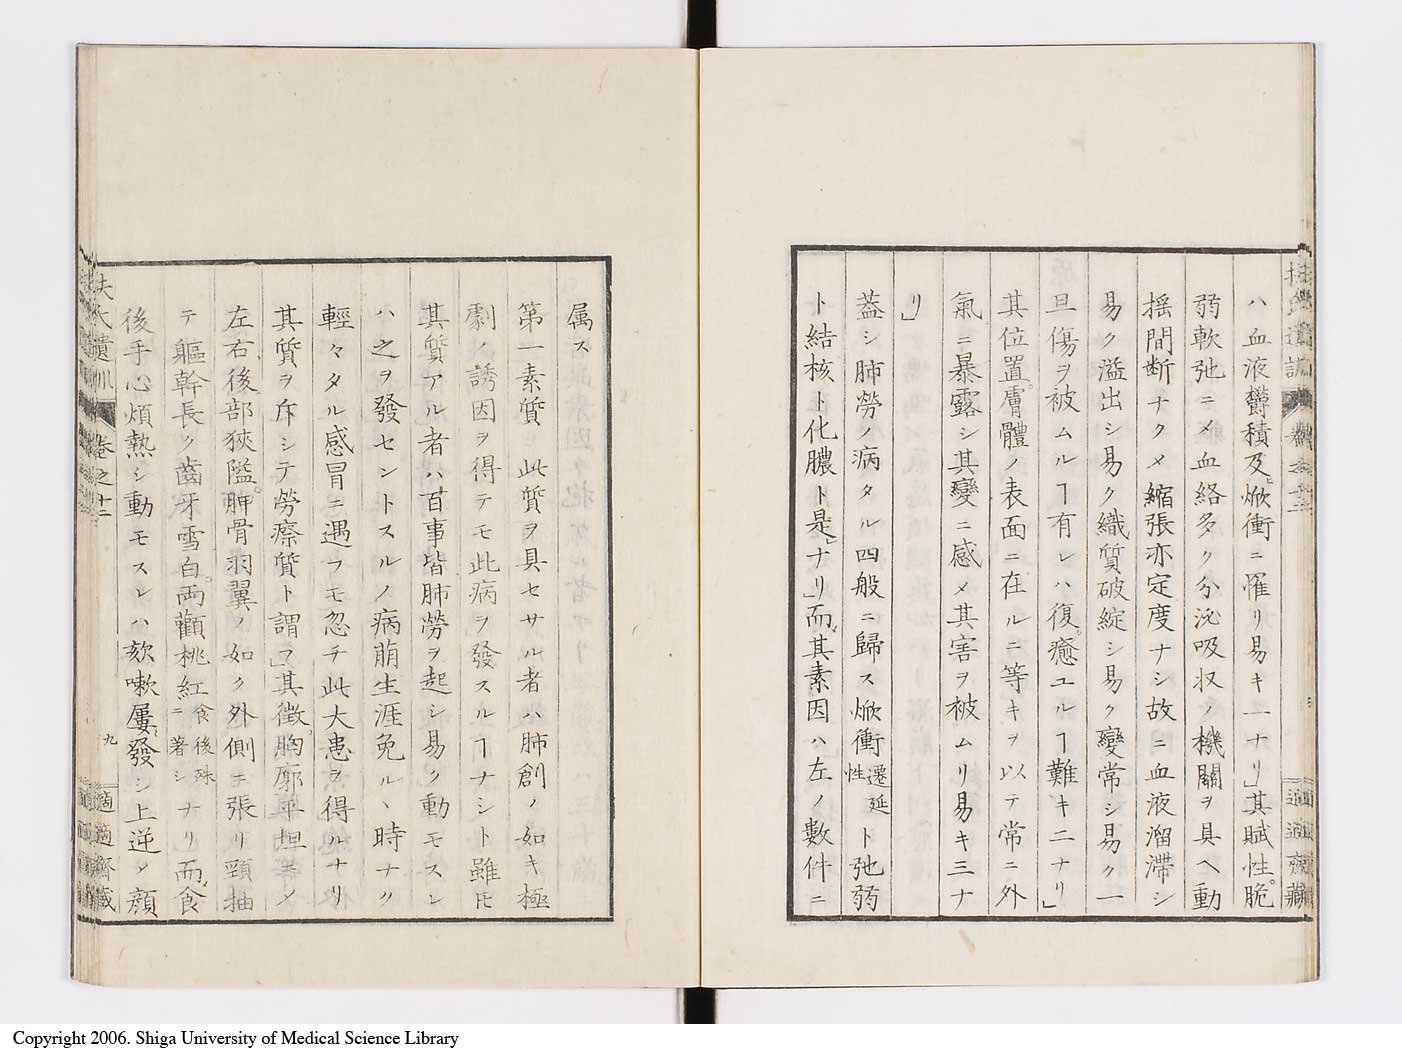 ハ血液欝積及ヒ焮衝ニ罹リ易キ一ナリ」其賦性脆
弱軟弛ニ〆血絡多ク分泌吸収ノ機關ヲ具ヘ動
揺間断ナク〆縮張亦定度ナシ故ニ血液溜滞シ
易ク溢出シ易ク織質破綻シ易ク變常シ易ク一
旦傷ヲ被ムルヿ有レハ復癒ユルヿ難キ二ナリ」
其位置膚體ノ表面ニ在ルニ等キヲ以テ常ニ外
氣ニ暴露シ其變ニ感〆其害ヲ被ムリ易キ三ナ
リ」
蓋シ肺勞ノ病タル四般ニ歸ス焮衝遷延性ト弛弱
ト結核ト化膿ト是ナリ」而〆其素因ハ左ノ數件ニ
属ス
第一素質 此質ヲ具セサル者ハ肺創ノ如キ極
劇ノ誘因ヲ得テモ此病ヲ發スルヿナシト雖𪜈
其質アル者ハ百事皆肺勞ヲ起シ易ク動モスレ
ハ之ヲ發セントスルノ病萠生涯免ルヽ時ナク
輕々タル感冒ニ遇フモ忽チ此大患ヲ得ルナリ
其質ヲ斥シテ勞瘵質ト謂フ」其徴胸廓平坦ニ〆
左右後部狹隘胛骨羽翼ノ如ク外側ニ張リ頸抽
テ軀幹長ク齒牙雪白両顴桃紅食後殊ニ著シヲナリ而〆食
後手心煩熱シ動モスレハ欬嗽屢發シ上逆〆顔
扶氏遺訓
卷之十二
九
適適齋藏
適適齋藏